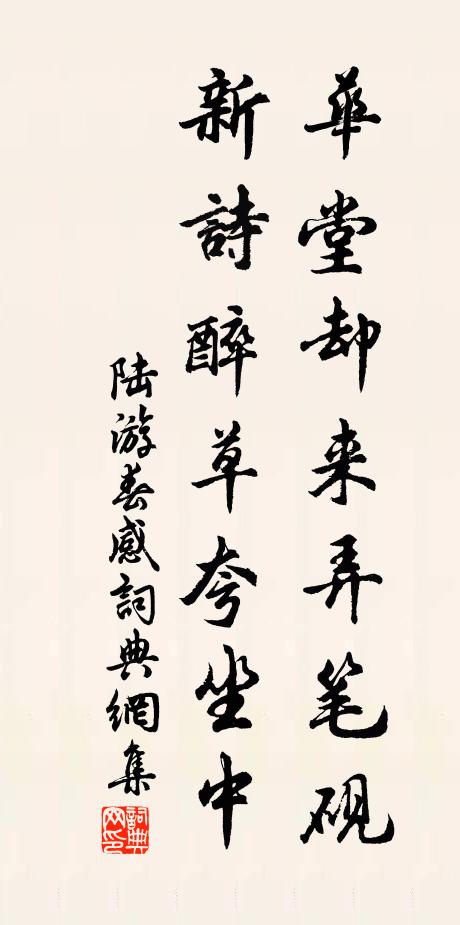 華堂却来弄笔砚
新詩醉草夸坐中
陆游春感詞典網集
詞典网印